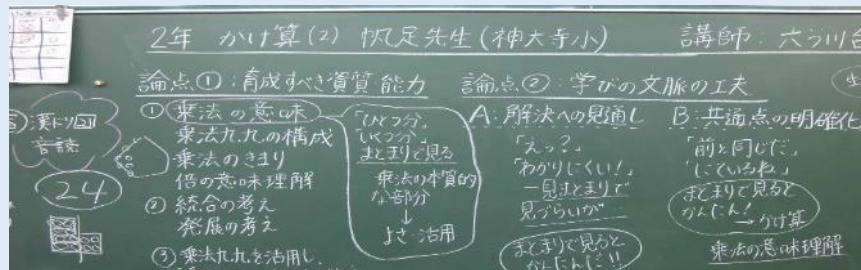 2年 かけ算(2) 帆足先生(神大寺小) 講師:六つ川台
論点①:育成すべき資質能力
① 乗法の意味
乗法九九の構成
乗法のきまり
倍の意味理解
② 統合の考え
発展の考え
③ 乗法九九を活用し、
「ひとつ分」
「いくつ分」
まとまりで見る
乗法の本質的
な部分
↓
よさ・活用
論点②:学びの文脈の工夫
A:解決への見通し
「えっ?」
「わかりにくい!」
一見まとまりで
見づらいが
まとまりで見ると
かんたんだ!!
B:共通点の明確化
「前と同じだ」
「にているね」
まとまりで見ると
かんたん!
→かけ算
乗法の意味理解
漢ドリ
音読
24